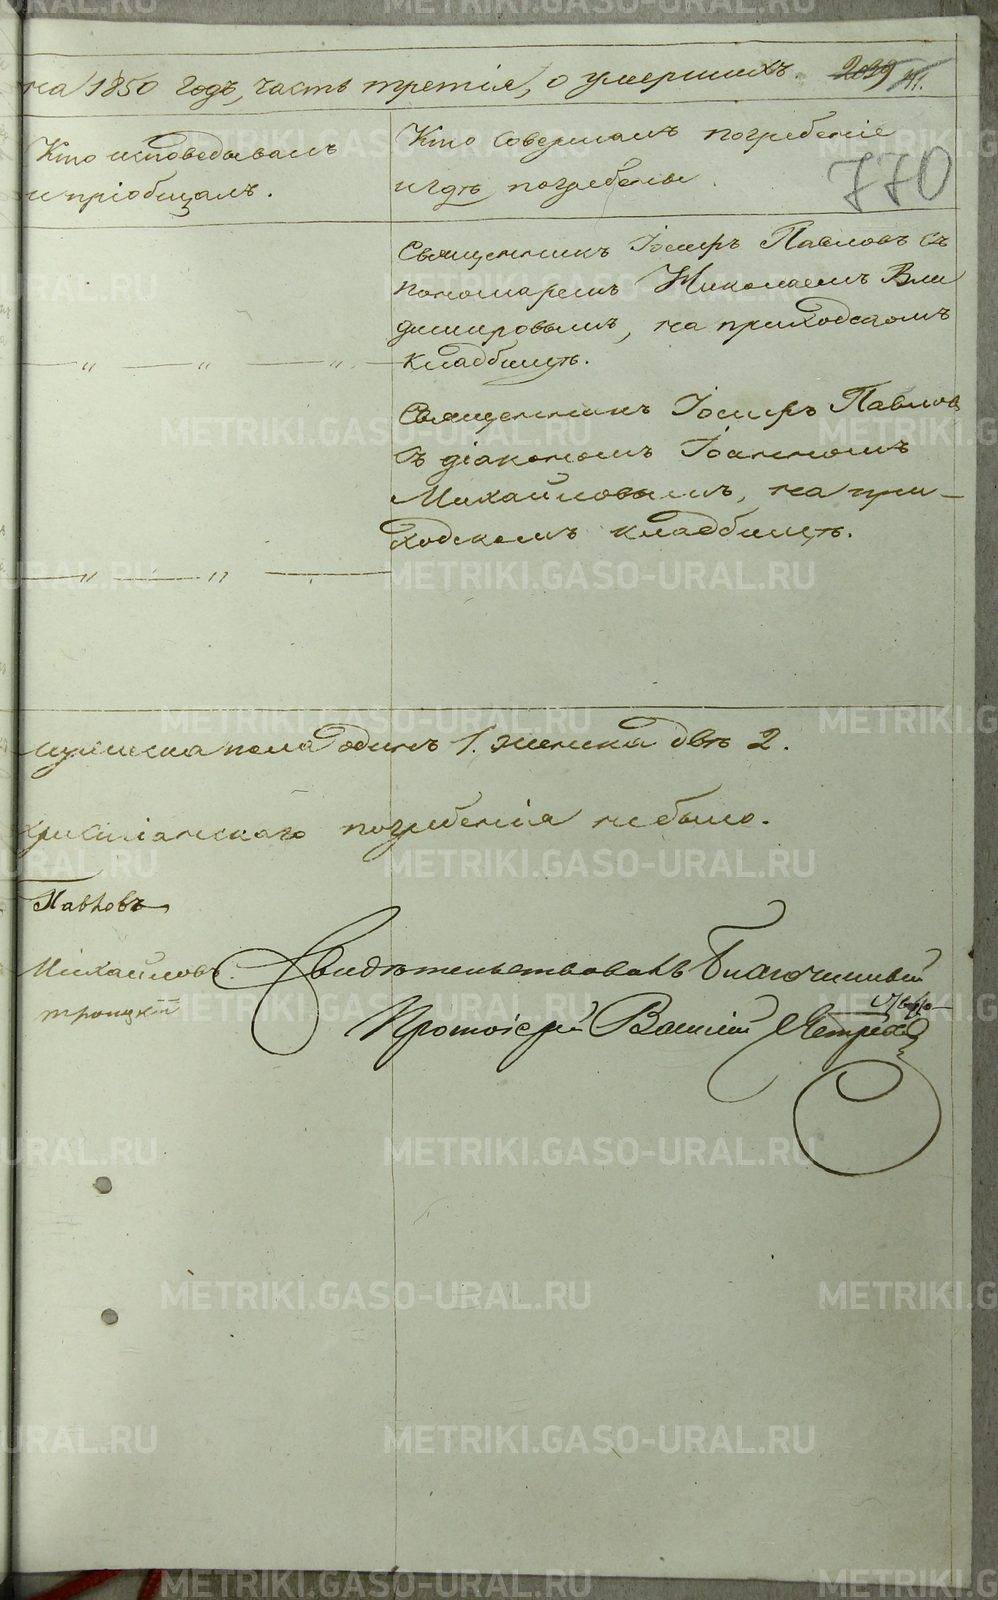 на 1850 годъ, часть третія, о умершихъ.
770
Кто исповедывалъ
и пріобщалъ.
Кто совершалъ погребеніе
и гдѣ погребены.
Священникъ Іосифъ Павловъ съ
пономаремъ Николаемъ Вла
димировымъ, на приходскомъ
кладбищѣ.
Священникъ Іосифъ Павловъ
съ діакономъ Іоанномъ
Михайловымъ, на при-
ходскомъ кладбищѣ.
мужеска пола одинъ 1. женска двѣ 2.
христіанскаго погребенія небыло.
Павловъ
Михайловъ.
троицкій
Свидѣтельствовалъ Благочинный
Протоіерей Василій
METRIKI.GASO-URAL.RU